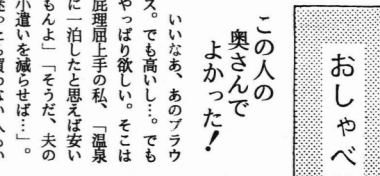 おしゃべ
この人の
奥さんで
よかった！
いいなあ、あのブラウ
ス。でも高いし…。でも
やっぱり欲しい。そこは
屁理屈上手の私、「温泉
に一泊したと思えば安い
もんよ」「そうだ、夫の
小遣いを減らせば…」。